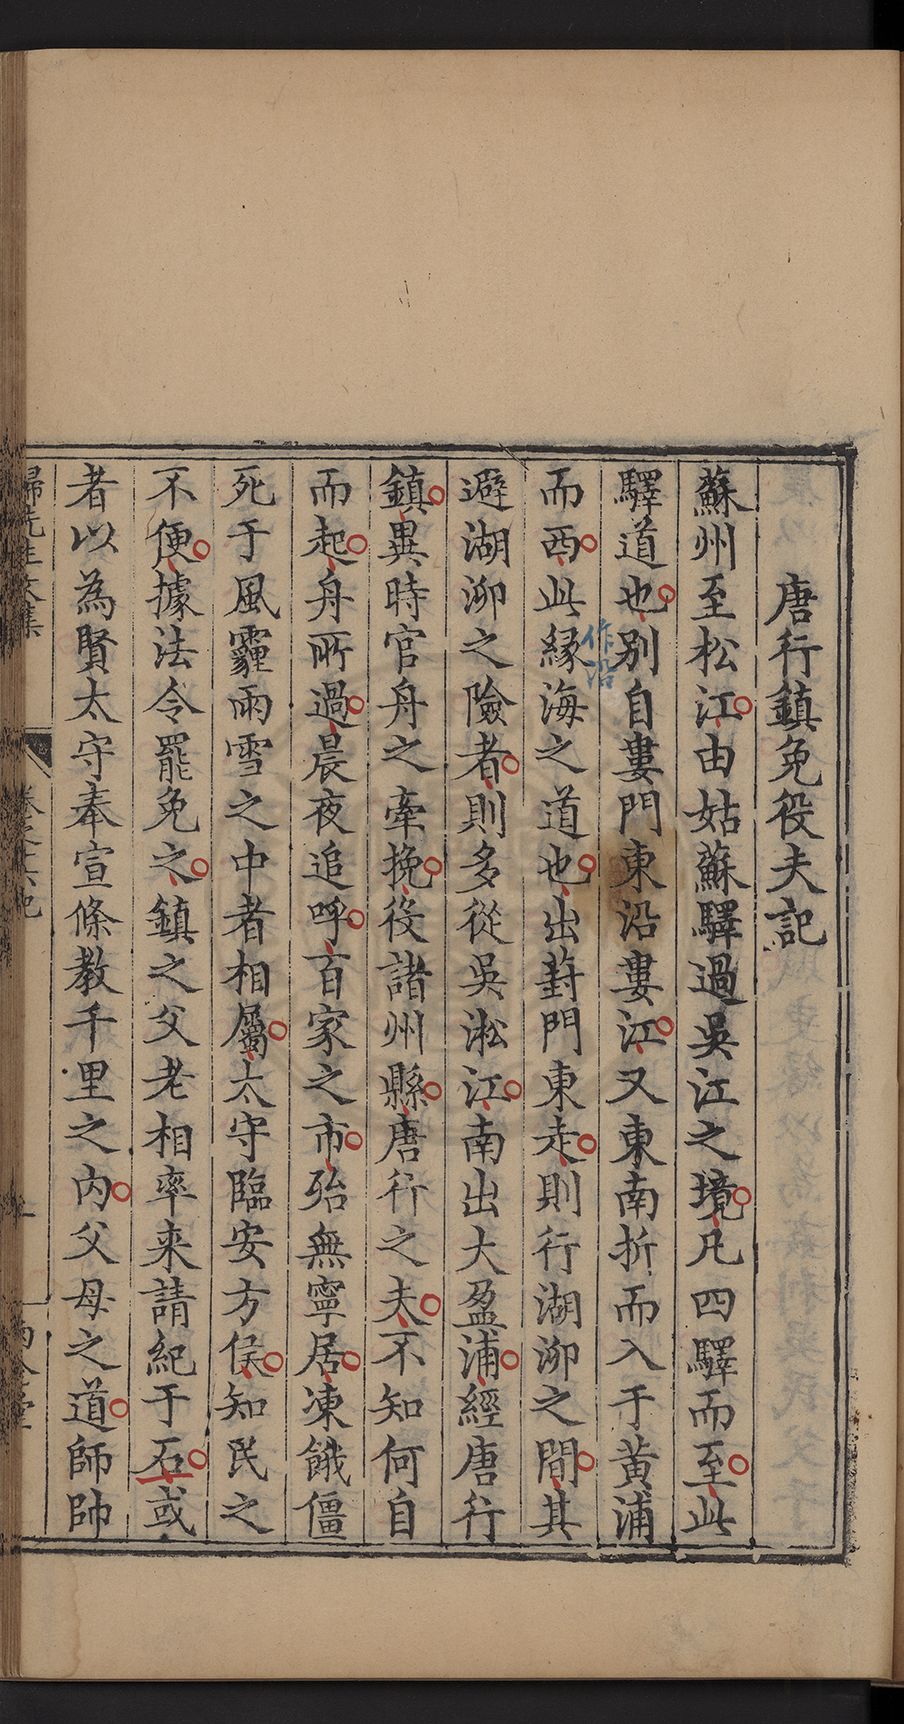 唐行鎮免役夫記
蘇州至松江由姑蘇驛過吳江之境凡四驛而至此
驛道也別自婁門東沿婁江又東南折而入于黃浦
而西此緣海之道也出葑門東走則行湖泖之間其
作沿
避湖泖之險者則多從吳淞江南出大盈浦經唐行
鎮異時官舟之牽挽役諸州縣唐行之夫不知何自
而起舟所過晨夜追呼百家之市殆無寧居凍餓僵
死于風霾雨雪之中者相屬太守臨安方侯知民之
不便據法令罷免之鎮之父老相率来請紀于石或
者以為賢太守奉宣條教千里之內父母之道師帥